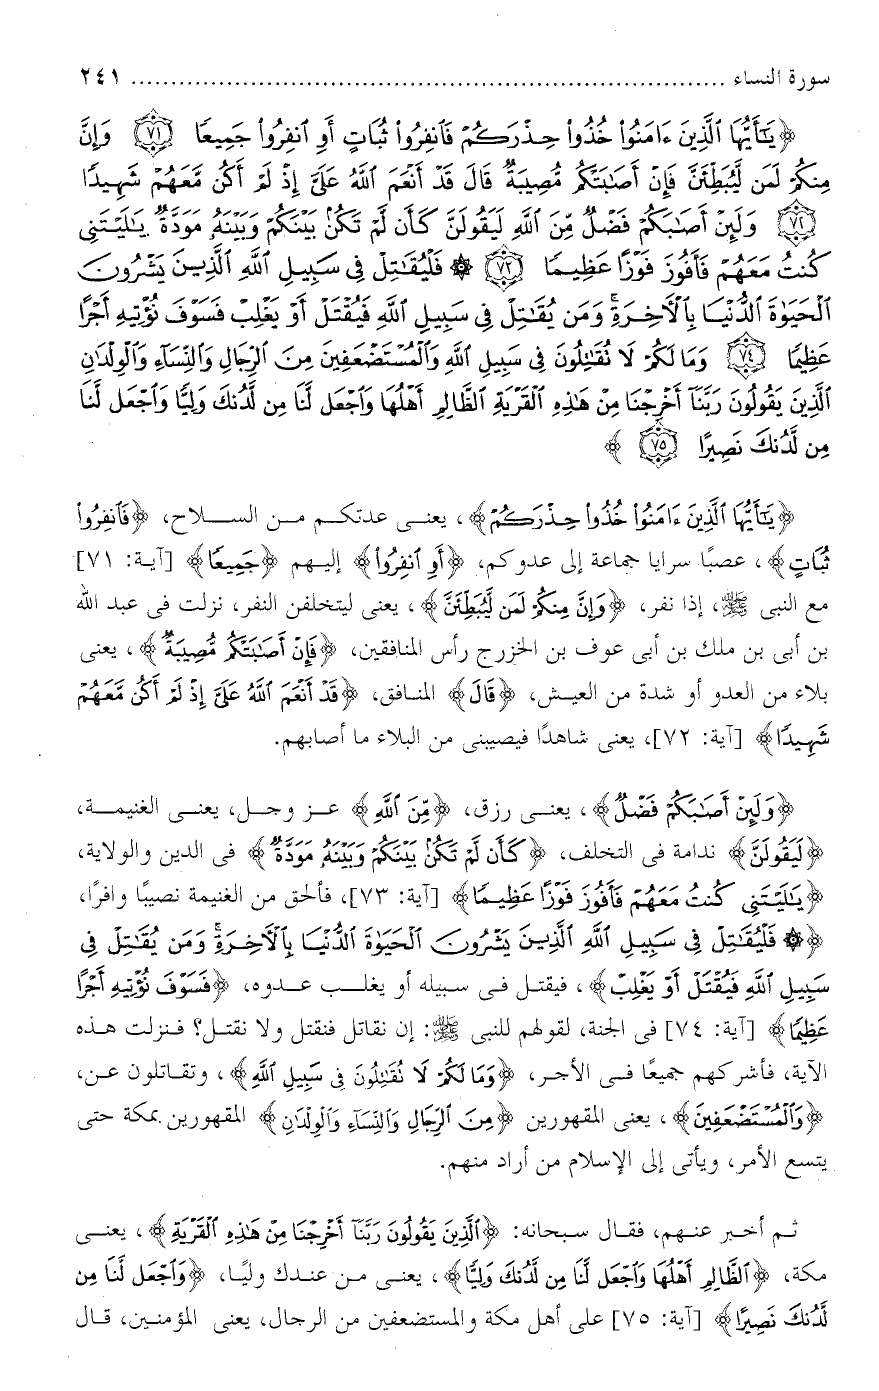 سورة النساء ........................................................................... ٢٤١
﴿يَٰٓأَيُّهَا ٱلَّذِينَ ءَامَنُوا۟ خُذُوا۟ حِذْرَكُمْ فَٱنفِرُوا۟ ثُبَاتٍ أَوِ ٱنفِرُوا۟ جَمِيعًا ٧١ وَإِنَّ
مِنكُمْ لَمَن لَّيُبَطِّئَنَّ فَإِنْ أَصَٰبَتْكُم مُّصِيبَةٌ قَالَ قَدْ أَنْعَمَ ٱللَّهُ عَلَىَّ إِذْ لَمْ أَكُن مَّعَهُمْ شَهِيدًا
٧٢ وَلَئِنْ أَصَٰبَكُمْ فَضْلٌ مِّنَ ٱللَّهِ لَيَقُولَنَّ كَأَن لَّمْ تَكُنۢ بَيْنَكُمْ وَبَيْنَهُۥ مَوَدَّةٌ يَٰلَيْتَنِى
كُنتُ مَعَهُمْ فَأَفُوزَ فَوْزًا عَظِيمًا ٧٣ ۞ فَلْيُقَٰتِلْ فِى سَبِيلِ ٱللَّهِ ٱلَّذِينَ يَشْرُونَ
ٱلْحَيَوٰةَ ٱلدُّنْيَا بِٱلْءَاخِرَةِ ۚ وَمَن يُقَٰتِلْ فِى سَبِيلِ ٱللَّهِ فَيُقْتَلْ أَوْ يَغْلِبْ فَسَوْفَ نُؤْتِيهِ أَجْرًا
عَظِيمًا ٧٤ وَمَا لَكُمْ لَا تُقَٰتِلُونَ فِى سَبِيلِ ٱللَّهِ وَٱلْمُسْتَضْعَفِينَ مِنَ ٱلرِّجَالِ وَٱلنِّسَآءِ وَٱلْوِلْدَٰنِ
ٱلَّذِينَ يَقُولُونَ رَبَّنَآ أَخْرِجْنَا مِنْ هَٰذِهِ ٱلْقَرْيَةِ ٱلظَّالِمِ أَهْلُهَا وَٱجْعَل لَّنَا مِن لَّدُنكَ وَلِيًّا وَٱجْعَل لَّنَا
مِن لَّدُنكَ نَصِيرًا ٧٥ ﴾
﴿يَٰٓأَيُّهَا ٱلَّذِينَ ءَامَنُوا۟ خُذُوا۟ حِذْرَكُمْ﴾، يعنى عدتكم من السلاح، ﴿فَٱنفِرُوا۟
ثُبَاتٍ﴾، عصبًا سرايا جماعة إلى عدوكم، ﴿أَوِ ٱنفِرُوا۟﴾ إليهم ﴿جَمِيعًا﴾ [آية: ٧١]
مع النبى ﷺ، إذا نفر، ﴿وَإِنَّ مِنكُمْ لَمَن لَّيُبَطِّئَنَّ﴾، يعنى ليتخلفن النفر، نزلت فى عبد الله
بن أبى بن ملك بن أبى عوف بن الخزرج رأس المنافقين، ﴿فَإِنْ أَصَٰبَتْكُم مُّصِيبَةٌ﴾، يعنى
بلاء من العدو أو شدة من العيش، ﴿قَالَ﴾ المنافق، ﴿قَدْ أَنْعَمَ ٱللَّهُ عَلَىَّ إِذْ لَمْ أَكُن مَّعَهُمْ
شَهِيدًا﴾ [آية: ٧٢]، يعنى شاهدًا فيصيبنى من البلاء ما أصابهم.
﴿وَلَئِنْ أَصَٰبَكُمْ فَضْلٌ﴾، يعنى رزق، ﴿مِّنَ ٱللَّهِ﴾ عز وجل، يعنى الغنيمة،
﴿لَيَقُولَنَّ﴾ ندامة فى التخلف، ﴿كَأَن لَّمْ تَكُنۢ بَيْنَكُمْ وَبَيْنَهُۥ مَوَدَّةٌ﴾ فى الدين والولاية،
﴿يَٰلَيْتَنِى كُنتُ مَعَهُمْ فَأَفُوزَ فَوْزًا عَظِيمًا﴾ [آية: ٧٣]، فألحق من الغنيمة نصيبًا وافرًا،
﴿۞ فَلْيُقَٰتِلْ فِى سَبِيلِ ٱللَّهِ ٱلَّذِينَ يَشْرُونَ ٱلْحَيَوٰةَ ٱلدُّنْيَا بِٱلْءَاخِرَةِ ۚ وَمَن يُقَٰتِلْ فِى
سَبِيلِ ٱللَّهِ فَيُقْتَلْ أَوْ يَغْلِبْ﴾، فيقتل فى سبيله أو يغلب عدوه، ﴿فَسَوْفَ نُؤْتِيهِ أَجْرًا
عَظِيمًا﴾ [آية: ٧٤] فى الجنة، لقولهم للنبى ﷺ: إن نقاتل فنقتل ولا نقتل؟ فنزلت هذه
الآية، فأشركهم جميعًا فى الأجر، ﴿وَمَا لَكُمْ لَا تُقَٰتِلُونَ فِى سَبِيلِ ٱللَّهِ﴾، وتقاتلون عن،
﴿وَٱلْمُسْتَضْعَفِينَ﴾، يعنى المقهورين ﴿مِنَ ٱلرِّجَالِ وَٱلنِّسَآءِ وَٱلْوِلْدَٰنِ﴾ المقهورين بمكة حتى
يتسع الأمر، ويأتى إلى الإسلام من أراد منهم.
ثم أخبر عنهم، فقال سبحانه: ﴿ٱلَّذِينَ يَقُولُونَ رَبَّنَآ أَخْرِجْنَا مِنْ هَٰذِهِ ٱلْقَرْيَةِ﴾، يعنى
مكة، ﴿ٱلظَّالِمِ أَهْلُهَا وَٱجْعَل لَّنَا مِن لَّدُنكَ وَلِيًّا﴾، يعنى من عندك وليًا، ﴿وَٱجْعَل لَّنَا مِن
لَّدُنكَ نَصِيرًا﴾ [آية: ٧٥] على أهل مكة والمستضعفين من الرجال، يعنى المؤمنين، قال